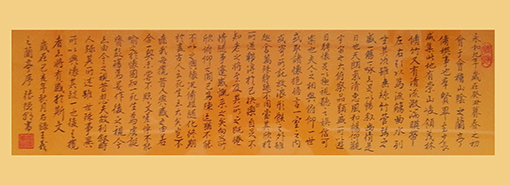 永和九年歲在癸丑暮春之初
會于會稽山陰之蘭亭
脩禊事也羣賢畢至少長
咸集此地有崇山峻領茂林
脩竹又有清流激湍暎帶
左右引以為流觴曲水列
坐其次雖無絲竹管弦之
盛一觴一詠亦足以暢敘幽情是
日也天朗氣清惠風和暢仰觀
宇宙之大俯察品類之盛所以遊
目騁懷足以極視聽之娛信可
樂也夫人之相與俯仰一世
或取諸懷抱悟言一室之內
或因寄所託放浪形骸之外雖
趣舍萬殊靜躁不同當其欣於
所遇暫得於己快然自足不
知老之將至及其所之既惓
情隨事遷感慨係之矣向之所
欣俛仰之間已為陳迹猶不能
不以之興懷況脩短隨化終期
於盡古人云死生亦大矣豈不
痛哉每攬昔人興感之由若
合一契未嘗不臨文嗟悼不能
喻之於懷固知一死生為虛誕
齊彭殤為妄作後之視今
亦由今之視昔悲夫故列敘時
人錄其所述雖世殊事異所
以興懷其致一也後之攬
者亦將有感於斯文
歲在
之蘭亭序 書